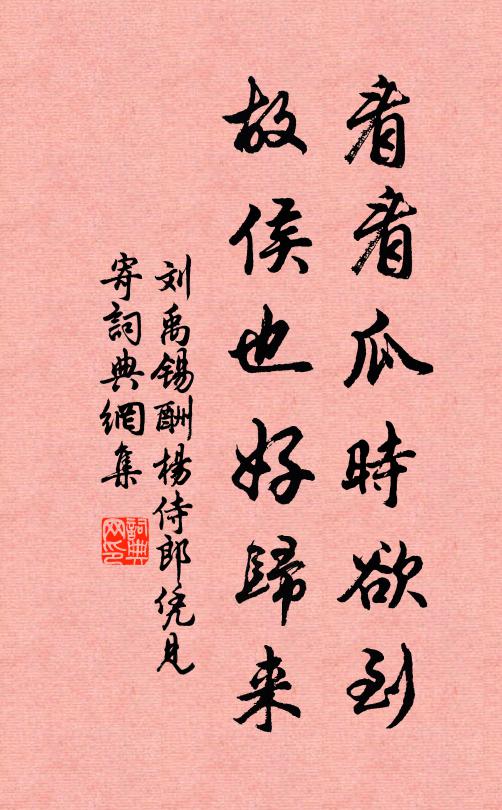 看看瓜時欲到
故侯也好歸来
刘禹锡酬楊侍郎凭見
寄詞典網集
詞典網印